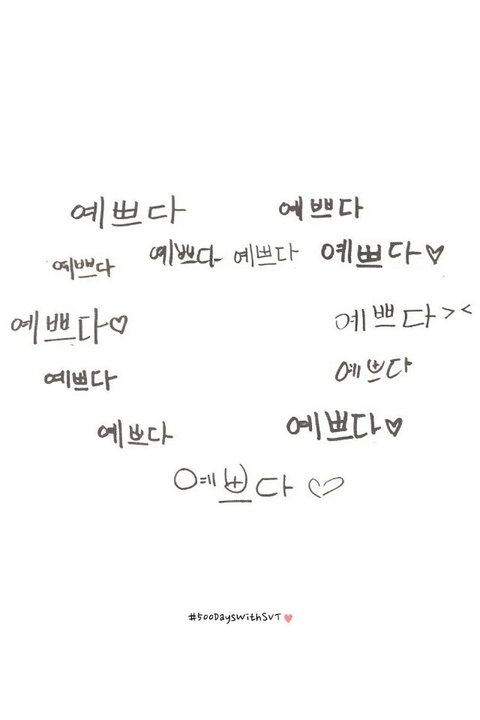 예쁘다 예쁘다
예쁘다 예쁘다 예쁘다 예쁘다♥
예쁘다♡ 예쁘다><
예쁘다 예쁘다
예쁘다 예쁘다♥
예쁘다 ♡
#500DaysWithSVT♥